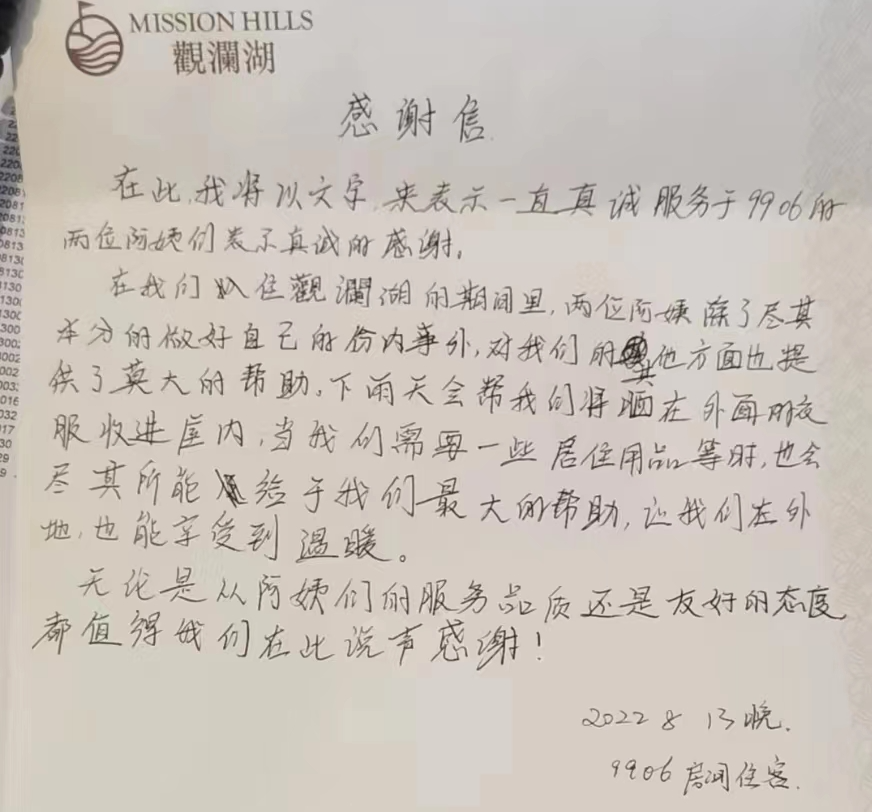 MISSION HILLS
觀瀾湖
感谢信
在此,我将以文字,来表示一直真诚服务于9906的
两位阿姨们表示真诚的感谢。
在我们入住觀瀾湖的期间里,两位阿姨除了尽其
本分的做好自己的份内事外,对我们的其他方面也提
供了莫大的帮助。下雨天会帮我们将晒在外面的衣
服收进屋内,当我们需要一些居住用品等时,也会
尽其所能给于我们最大的帮助,让我们在外
地,也能享受到温暖。
无论是从阿姨们的服务品质还是友好的态度
都值得我们在此说声感谢!
2022 8 13晚.
9906房间住客.